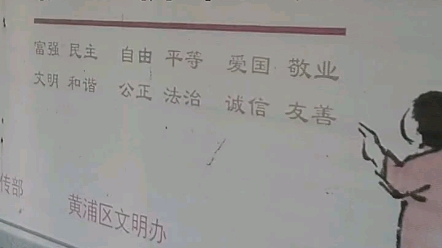 富强 民主 自由 平等 爱国 敬业
文明 和谐 公正 法治 诚信 友善
传部
黄浦区文明办